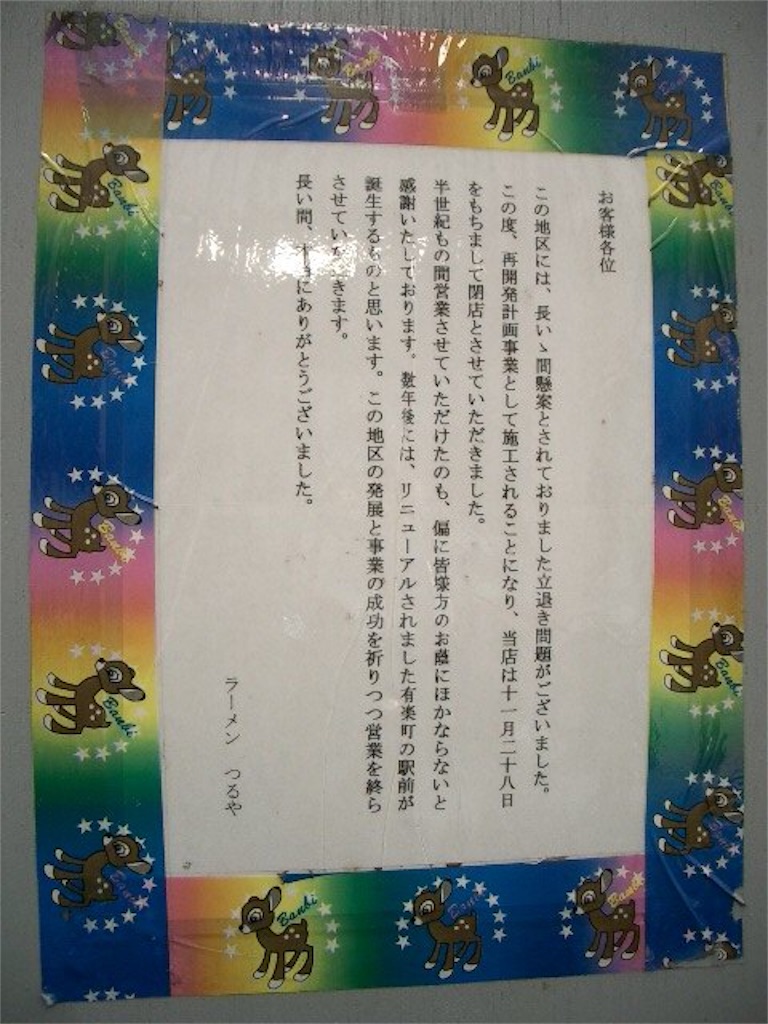 お客様各位
この地区には、長いゝ間懸案とされておりました立退き問題がございました。
この度、再開発計画事業として施工されることになり、当店は十一月二十八日
をもちまして閉店とさせていただきました。
半世紀もの間営業させていただけたのも、偏に皆様方のお蔭にほかならないと
感謝いたしております。数年後には、リニューアルされました有楽町の駅前が
誕生するものと思います。この地区の発展と事業の成功を祈りつつ営業を終ら
させていただきます。
長い間、本当にありがとうございました。
ラーメン つるや
Banbi
Banbi
Banbi
Banbi
Banbi
Banbi
Banbi
Banbi